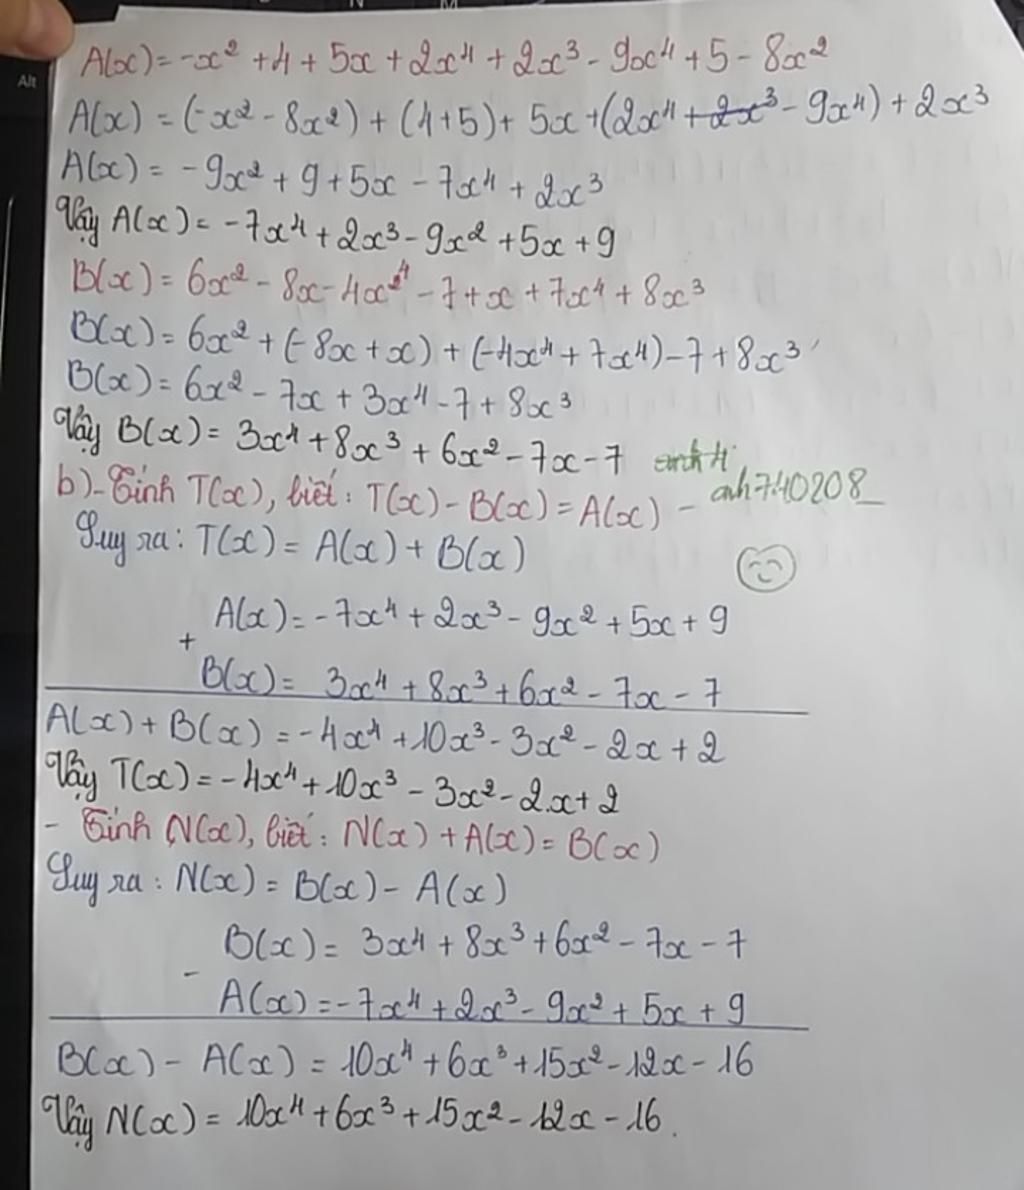 Alt
N
M
A(x) = -x² + 4 + 5x + 2x⁴ + 2x³ - 9x⁴ + 5 - 8x²
A(x) = (-x² - 8x²) + (4+5) + 5x + (2x⁴ + 2x³ - 9x⁴) + 2x³
A(x) = -9x² + 9 + 5x - 7x⁴ + 2x³
Vậy A(x) = -7x⁴ + 2x³ - 9x² + 5x + 9
B(x) = 6x² - 8x - 4x⁴ - 7 + x + 7x⁴ + 8x³
B(x) = 6x² + (-8x + x) + (-4x⁴ + 7x⁴) - 7 + 8x³
B(x) = 6x² - 7x + 3x⁴ - 7 + 8x³
Vậy B(x) = 3x⁴ + 8x³ + 6x² - 7x - 7
b) - Tính T(x), biết: T(x) - B(x) = A(x) - anh740208_
Suy ra: T(x) = A(x) + B(x)
A(x) = -7x⁴ + 2x³ - 9x² + 5x + 9
+
B(x) = 3x⁴ + 8x³ + 6x² - 7x - 7
A(x) + B(x) = -4x⁴ + 10x³ - 3x² - 2x + 2
Vậy T(x) = -4x⁴ + 10x³ - 3x² - 2x + 2
- Tính N(x), biết: N(x) + A(x) = B(x)
Suy ra: N(x) = B(x) - A(x)
B(x) = 3x⁴ + 8x³ + 6x² - 7x - 7
-
A(x) = -7x⁴ + 2x³ - 9x² + 5x + 9
B(x) - A(x) = 10x⁴ + 6x³ + 15x² - 12x - 16
Vậy N(x) = 10x⁴ + 6x³ + 15x² - 12x - 16.